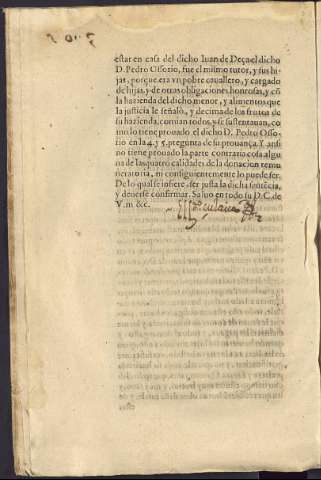 estar en casa del dicho Iuan de Deça el dicho
D. Pedro Ossorio, fue el mismo tutor, y sus hi-
jas, porque era vn pobre cauallero, y cargado
de hijas, y de otras obligaciones honrosas, y cõ
la hazienda del dicho menor, y alimentos que
la justicia le señalò, y decima de los frutos de
su hazienda, comian todos, y se sustentauan, co
mo lo tiene prouado el dicho D. Pedro Osso-
rio en la 4. y 5. pregunta de su prouança. Y ansi
no tiene prouado la parte contraria cosa algu
na de las quatro calidades de la donacion remu
neratoria, ni consiguientemente lo puede ser.
De lo qual se infiere ser justa la dicha sentẽcia,
y deuerse confirmar. Saluo en todo su D.C. de
V.m &c.